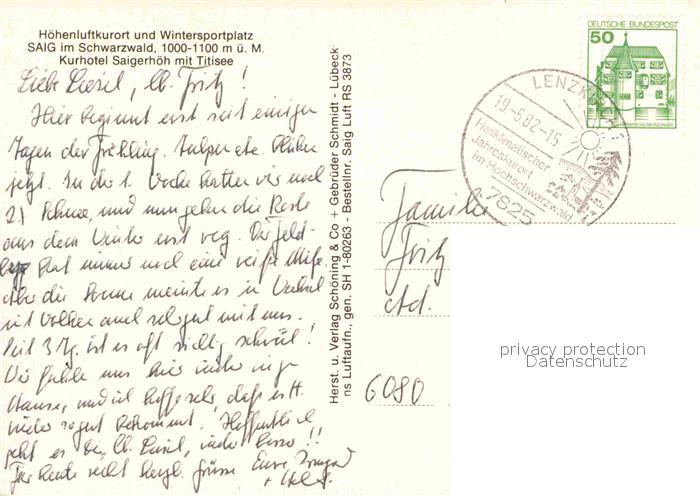 Höhenluftkurort und Wintersportplatz
SAIG im Schwarzwald, 1000-1100 m ü. M.
Kurhotel Saigerhöh mit Titisee
Liebe Liesel, lb. Fritz!
Hier beginnt erst seit einigen
Tagen der Frühling. Tulpen etc. blühen
jetzt. In der 1. Woche hatten wir noch
2x Schnee, und nun gehen die Reste
aus dem Winter erst weg. Der Feld-
berg hat immer noch eine weiße Mütze.
Aber die Sonne meinte es im Wechsel
mit Wolken auch sehr gut mit uns.
Seit 3 Tg. ist es oft richtig schwül!
Wir fühlen uns hier wieder wie
Hause, und ich hoffe sehr, daß es H.
wieder so gut bekommt. Hoffentlich
geht es Dir, lb. Liesel, wieder besser!!
Für heute recht herzl. Grüsse Eure
Herst. u. Verlag Schöning & Co + Gebrüder Schmidt - Lübeck
ns Luftaufn., gen. SH 1-80263 - Bestellnr. Saig Luft RS 3873
DEUTSCHE BUNDESPOST
50
LENZKIRCH
19.5.82-15
Heilklimatischer
Jahreskurort
im Hochschwarzwald
7825
Familie
Fritz
6080
privacy protection
Datenschutz